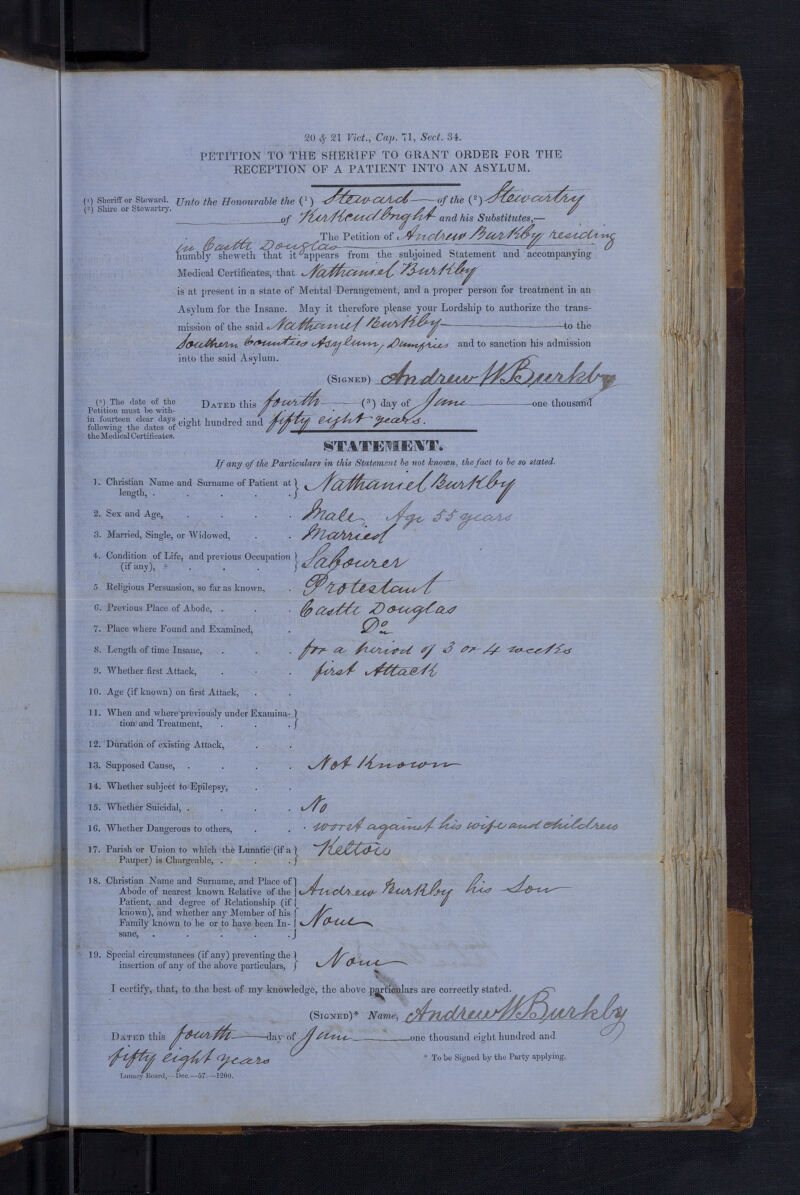 20 & 21 Vict., Cap. 71, Sect. 34.
PETITION TO THE SHERIFF TO GRANT ORDER FOR THE
RECEPTION OF A PATIENT INTO AN ASYLUM.
(1) Sheriff or Steward.
(2) Shire or Stewartry.
Unto the Honourable the (1) Steward of the (2) Stewartry
of Kirkcudbright and his Substitutes,—
The Petition of Andrew Burkby residing
in Castle Douglas
humbly sheweth that it appears from the subjoined Statement and accompanying
Medical Certificates, that Nathaniel Burkby
is at present in a state of Mental Derangement, and a proper person for treatment in an
Asylum for the Insane. May it therefore please your Lordship to authorize the trans-
mission of the said Nathaniel Burkby to the
Southern Counties Asylum, Dumfries and to sanction his admission
into the said Asylum.
(SIGNED) Andrew W Burkby
(3) The date of the
Petition must be with-
in fourteen clear days
following the dates of
the Medical Certificates.
DATED this fourth (3) day of June one thousand
eight hundred and fifty eight years.
STATEMENT.
If any of the Particulars in this Statement be not known, the fact to be so stated.
1. Christian Name and Surname of Patient at
length, . . . . . Nathaniel Burkby
2. Sex and Age, . . . . Male, Age 55 years
3. Married, Single, or Widowed, . . Married
4. Condition of Life, and previous Occupation
(if any), . . . . Labourer
5 Religious Persuasion, so far as known, . Protestant
6. Previous Place of Abode, . . . Castle Douglas
7. Place where Found and Examined, . Do
8. Length of time Insane, . . . for a period of 3 or 4 weeks
9. Whether first Attack, . . . first Attack
10. Age (if known) on first Attack, . .
11. When and where previously under Examina-
tion and Treatment, . . .
12. Duration of existing Attack, . .
13. Supposed Cause, . . . . Not Known
14. Whether subject to Epilepsy, . .
15. Whether Suicidal, . . . . No
16. Whether Dangerous to others, . . worst against his wife and children
17. Parish or Union to which the Lunatic (if a
Pauper) is Chargeable, . . . Keltow
18. Christian Name and Surname, and Place of
Abode of nearest known Relative of the
Patient, and degree of Relationship (if
known), and whether any Member of his
Family known to be or to have been In-
sane, . . . . .
Andrew Burkby his Son
None
19. Special circumstances (if any) preventing the
insertion of any of the above particulars, None
I certify, that, to the best of my knowledge, the above particulars are correctly stated.
(SIGNED)* Name, Andrew W Burkby
DATED this fourth day of June one thousand eight hundred and
fifty eight years
* To be Signed by the Party applying.
Lunacy Board,—Dec.—57.—1200.